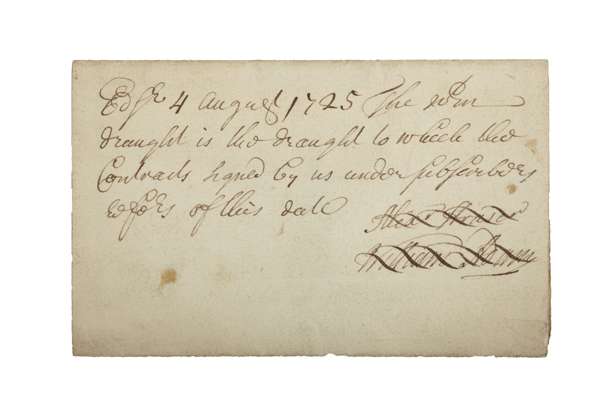 Edr 4 August 1725 The wtin
draught is the draught to which the
Contracts signed by us under subscribers
refers of this date
Alexr Fraser
William